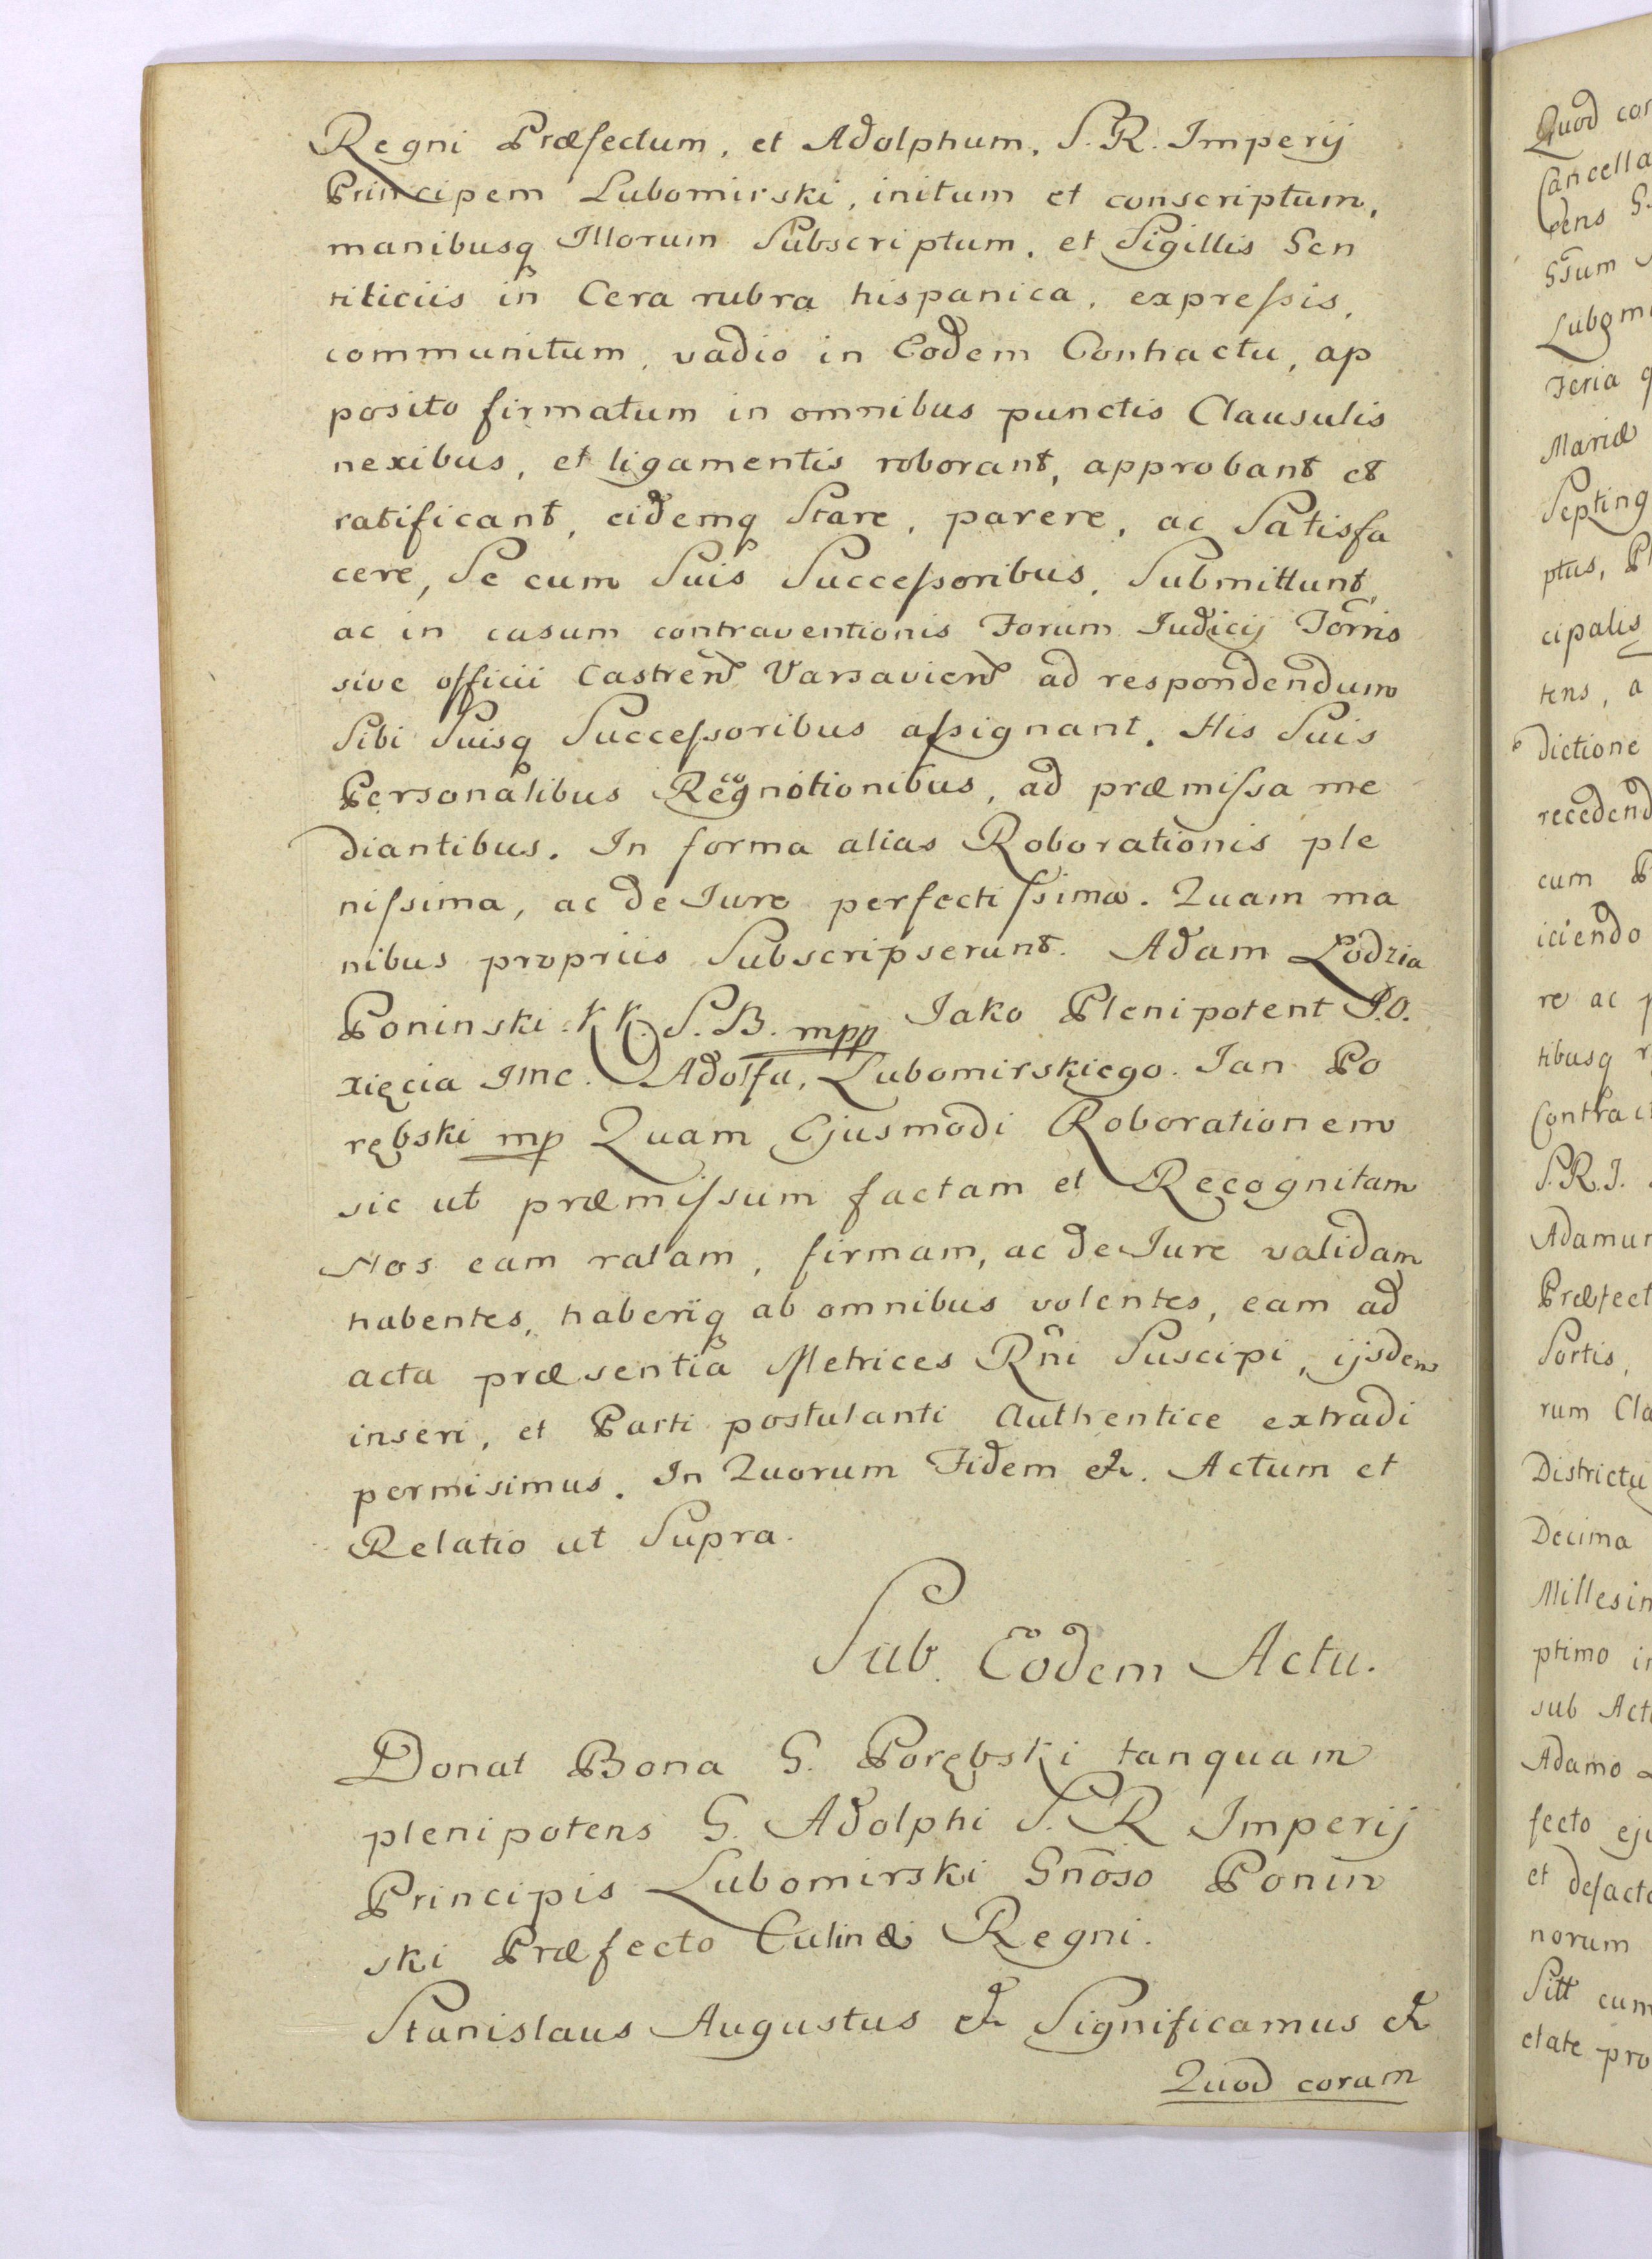 Regni Præfectum, et Adolphum, S. R. Imperij
Principem Lubomirski, initum et conscriptum,
manibusq Illorum Subscriptum, et Sigillis Gen
tiliciis in Cera rubra hispanica, expressis,
communitum, vadio in Eodem Contractu, ap
posito firmatum in omnibus punctis Clausulis
nexibus, et ligamentis roborant, approbant et
ratificant, eidemq Stare, parere, ac Satisfa
cere, Se cum Suis Successoribus, Submittunt,
ac in casum contraventionis Forum Judicij Torris
sive officii Castren Varsavien ad respondendum
Sibi Suisq Successoribus assignant. His Suis
Personalibus Recognitionibus, ad præmissa me
diantibus. In forma alias Roborationis ple
nissima, ac de Jure perfectissima. Quam ma
nibus propriis Subscripserunt. Adam Łodzia
Poninski K K. S. B. mpp Jako Plenipotent J.O.
xięcia Jmc. Adolfa, Lubomirskiego. Jan Po
rębski mp Quam Ejusmodi Roborationem
sic ut præmissum factam et Recognitam
Nos eam ratam, firmam, ac de Jure validam
habentes, haberiq ab omnibus volentes, eam ad
acta præsentia Metrices Rni Suscipi, ijsdem
inseri, et Parti postulanti Authentice extradi
permisimus. In Quorum Fidem &. Actum et
Relatio ut Supra.
Sub Eodem Actu.
Donat Bona G. Porębski tanquam
plenipotens G. Adolphi S. R Imperij
Principis Lubomirski Gnoso Ponin
ski Præfecto Culinæ Regni.
Stanislaus Augustus & Significamus &
Quod coram
Quod cor
Cancella
dens G.
Gsum
Lubomi
Feria q
Mariæ
Septing
ptus, Pl
cipalis
tens, a
dictione
recedend
cum P
iciendo
re ac p
tibusq r
Contract
S.R.I.
Adamum
Præfect
Sortis,
rum Cla
Districtu
Decima
Millesim
ptimo in
sub Actu
Adamo
fecto eju
et defacto
norum
Sitt cum
etate pro